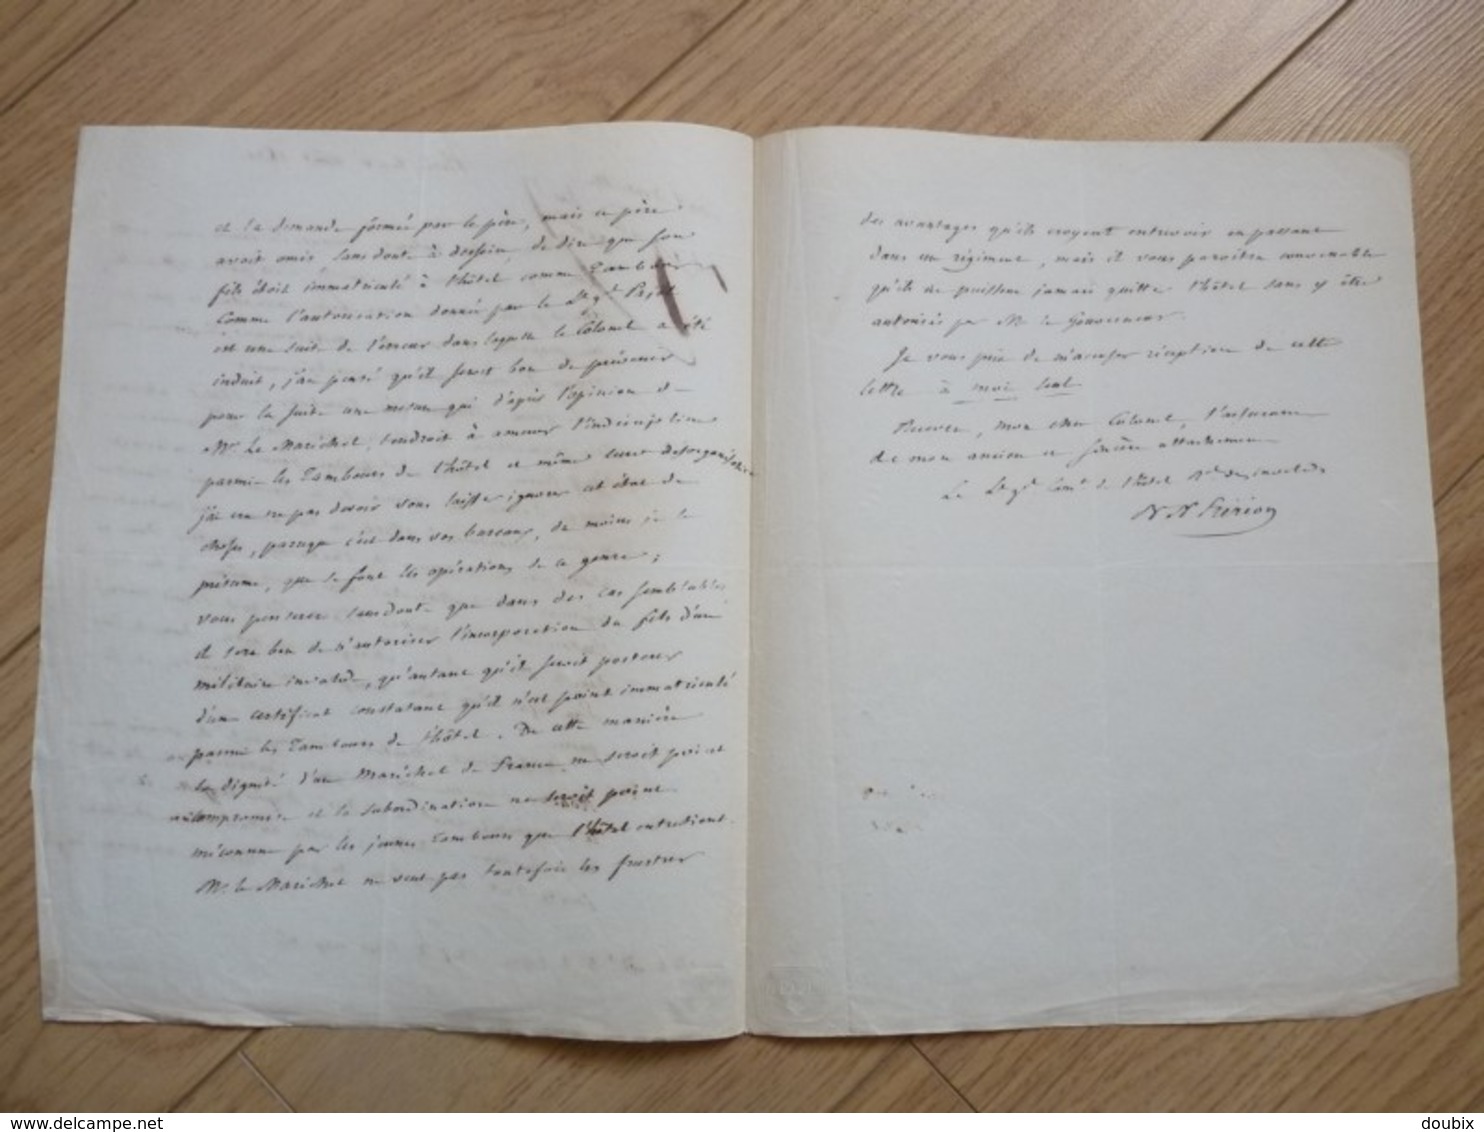 et la demande formée par le père, mais ce père
avoit omis sans doute à dessein, de dire que son
fils étoit immatriculé à l'hôtel comme Tambour
Comme l'autorisation donnée par le Lt gal Pajol
est une suite de l'erreur dans laquelle le Colonel a été
induit, j'ai pensé qu'il seroit bon de prévenir
pour la suite une mesure qui d'après l'opinion de
Mr. Le Maréchal, tendroit à amener l'indiscipline
parmi les Tambours de l'hôtel et même leur désorganisation
j'ai cru ne pas devoir vous laisser ignorer cet état de
choses, parceque c'est dans vos bureaux, du moins je le
présume, que se font les opérations de ce genre;
vous penserez sans doute que dans des cas semblables
il sera bon de n'autoriser l'incorporation du fils d'un
militaire invalide, qu'autant qu'il seroit porteur
d'un certificat constatant qu'il n'est point immatriculé
parmi les Tambours de l'hôtel. De cette manière
la dignité d'un Maréchal de France ne seroit point
compromise et la subordination ne seroit point
méconnue par les jeunes Tambours que l'hôtel entretient.
Mr. le Maréchal ne veut pas toutefois les frustrer
des avantages qu'ils croyent entrevoir en passant
dans un régiment, mais il vous paroîtra convenable
qu'ils ne puissent jamais quitter l'hôtel sans y être
autorisés par Mr. le Gouverneur.
Je vous prie de m'accuser réception de cette
lettre à moi seul
Recevez, mon cher Colonel, l'assurance
de mon ancien et sincère attachement
Le Lt gal Comt de l'hôtel Rl des invalides
Fririon
delcampe.net
doubix